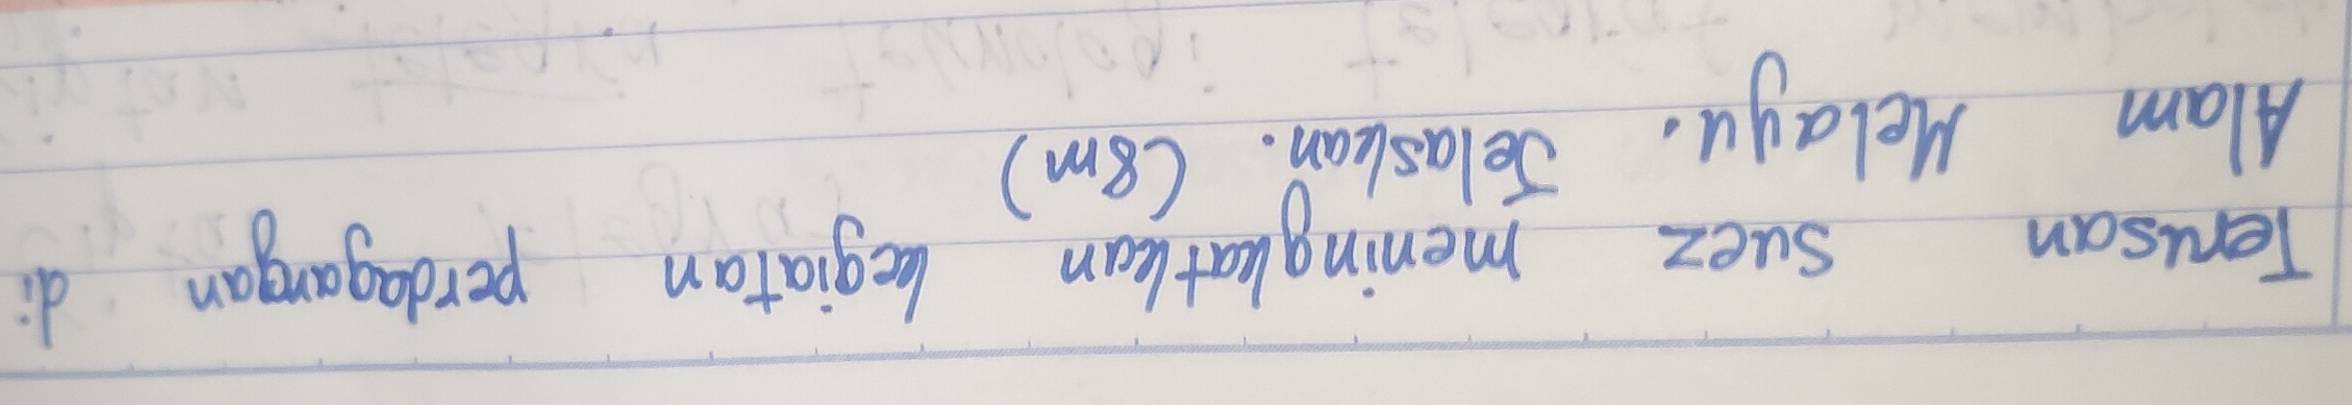 Terusan Suez meningkatkan kegiatan perdagangan di
Alam Melayu. Jelaskan. (8m)